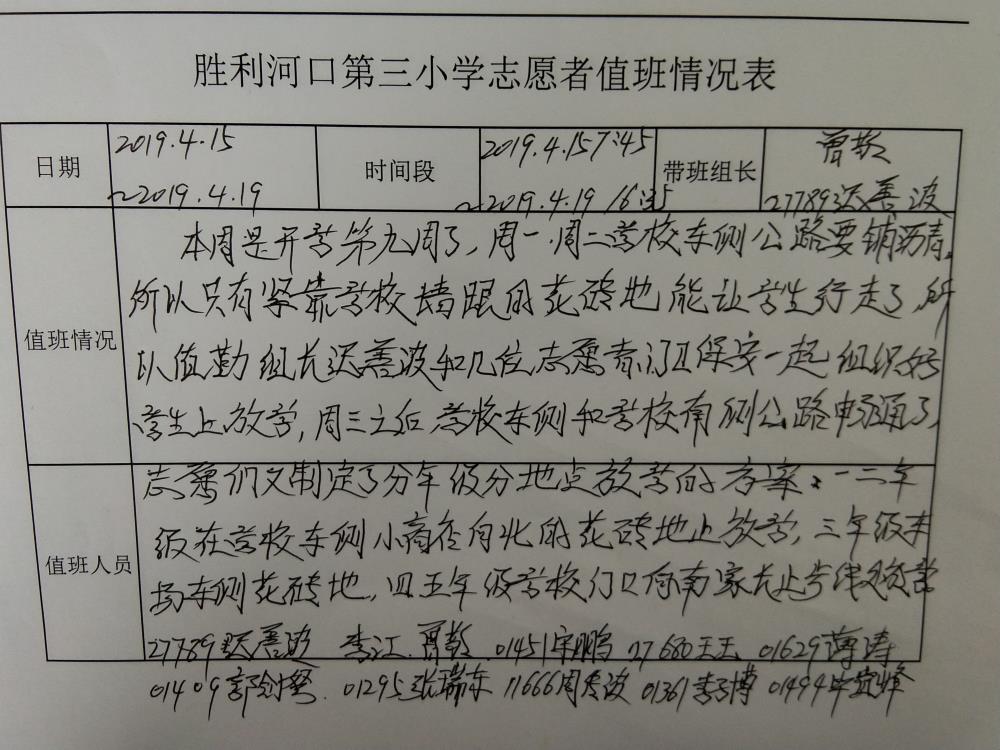 胜利河口第三小学志愿者值班情况表
日期 2019.4.15 时间段 2019.4.15 7:45 带班组长 曹敬
~2019.4.19 ~2019.4.19 16:35 27789迟善波
值班情况
本周是开学第九周了,周一.周二学校东侧公路要铺沥青,
所以只有紧靠学校墙跟的花砖地能让学生行走了 所
以值勤组长迟善波和几位志愿者门卫保安一起组织好
学生上放学,周三之后,学校东侧和学校南侧公路畅通了,
值班人员
志愿们又制定了分年级分地点放学的方案:一二年
级在学校东侧小商店向北的花砖地上放学,三年级末
场东侧花砖地,四五年级学校门口向南家长止步线
27789迟善波 李江 曹敬 01451宋鹏 27680王王 01629薄涛
01409郭 01295张瑞东 11666周秀波 01361李博 01494毕